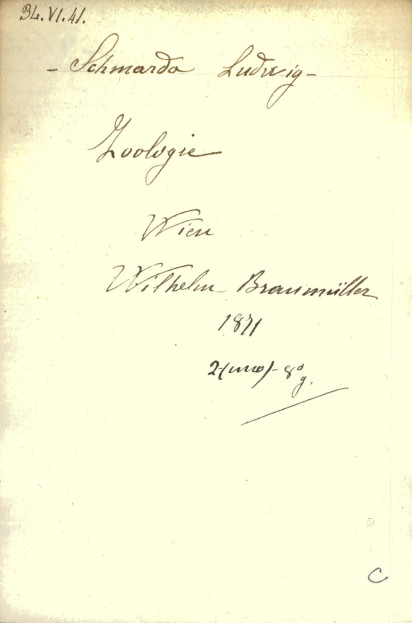 34.VI.41.
- Schmarda Ludwig -
Zoologie
Wien
Wilhelm - Braumüller
1871
2-(uno)- 8° g.
C